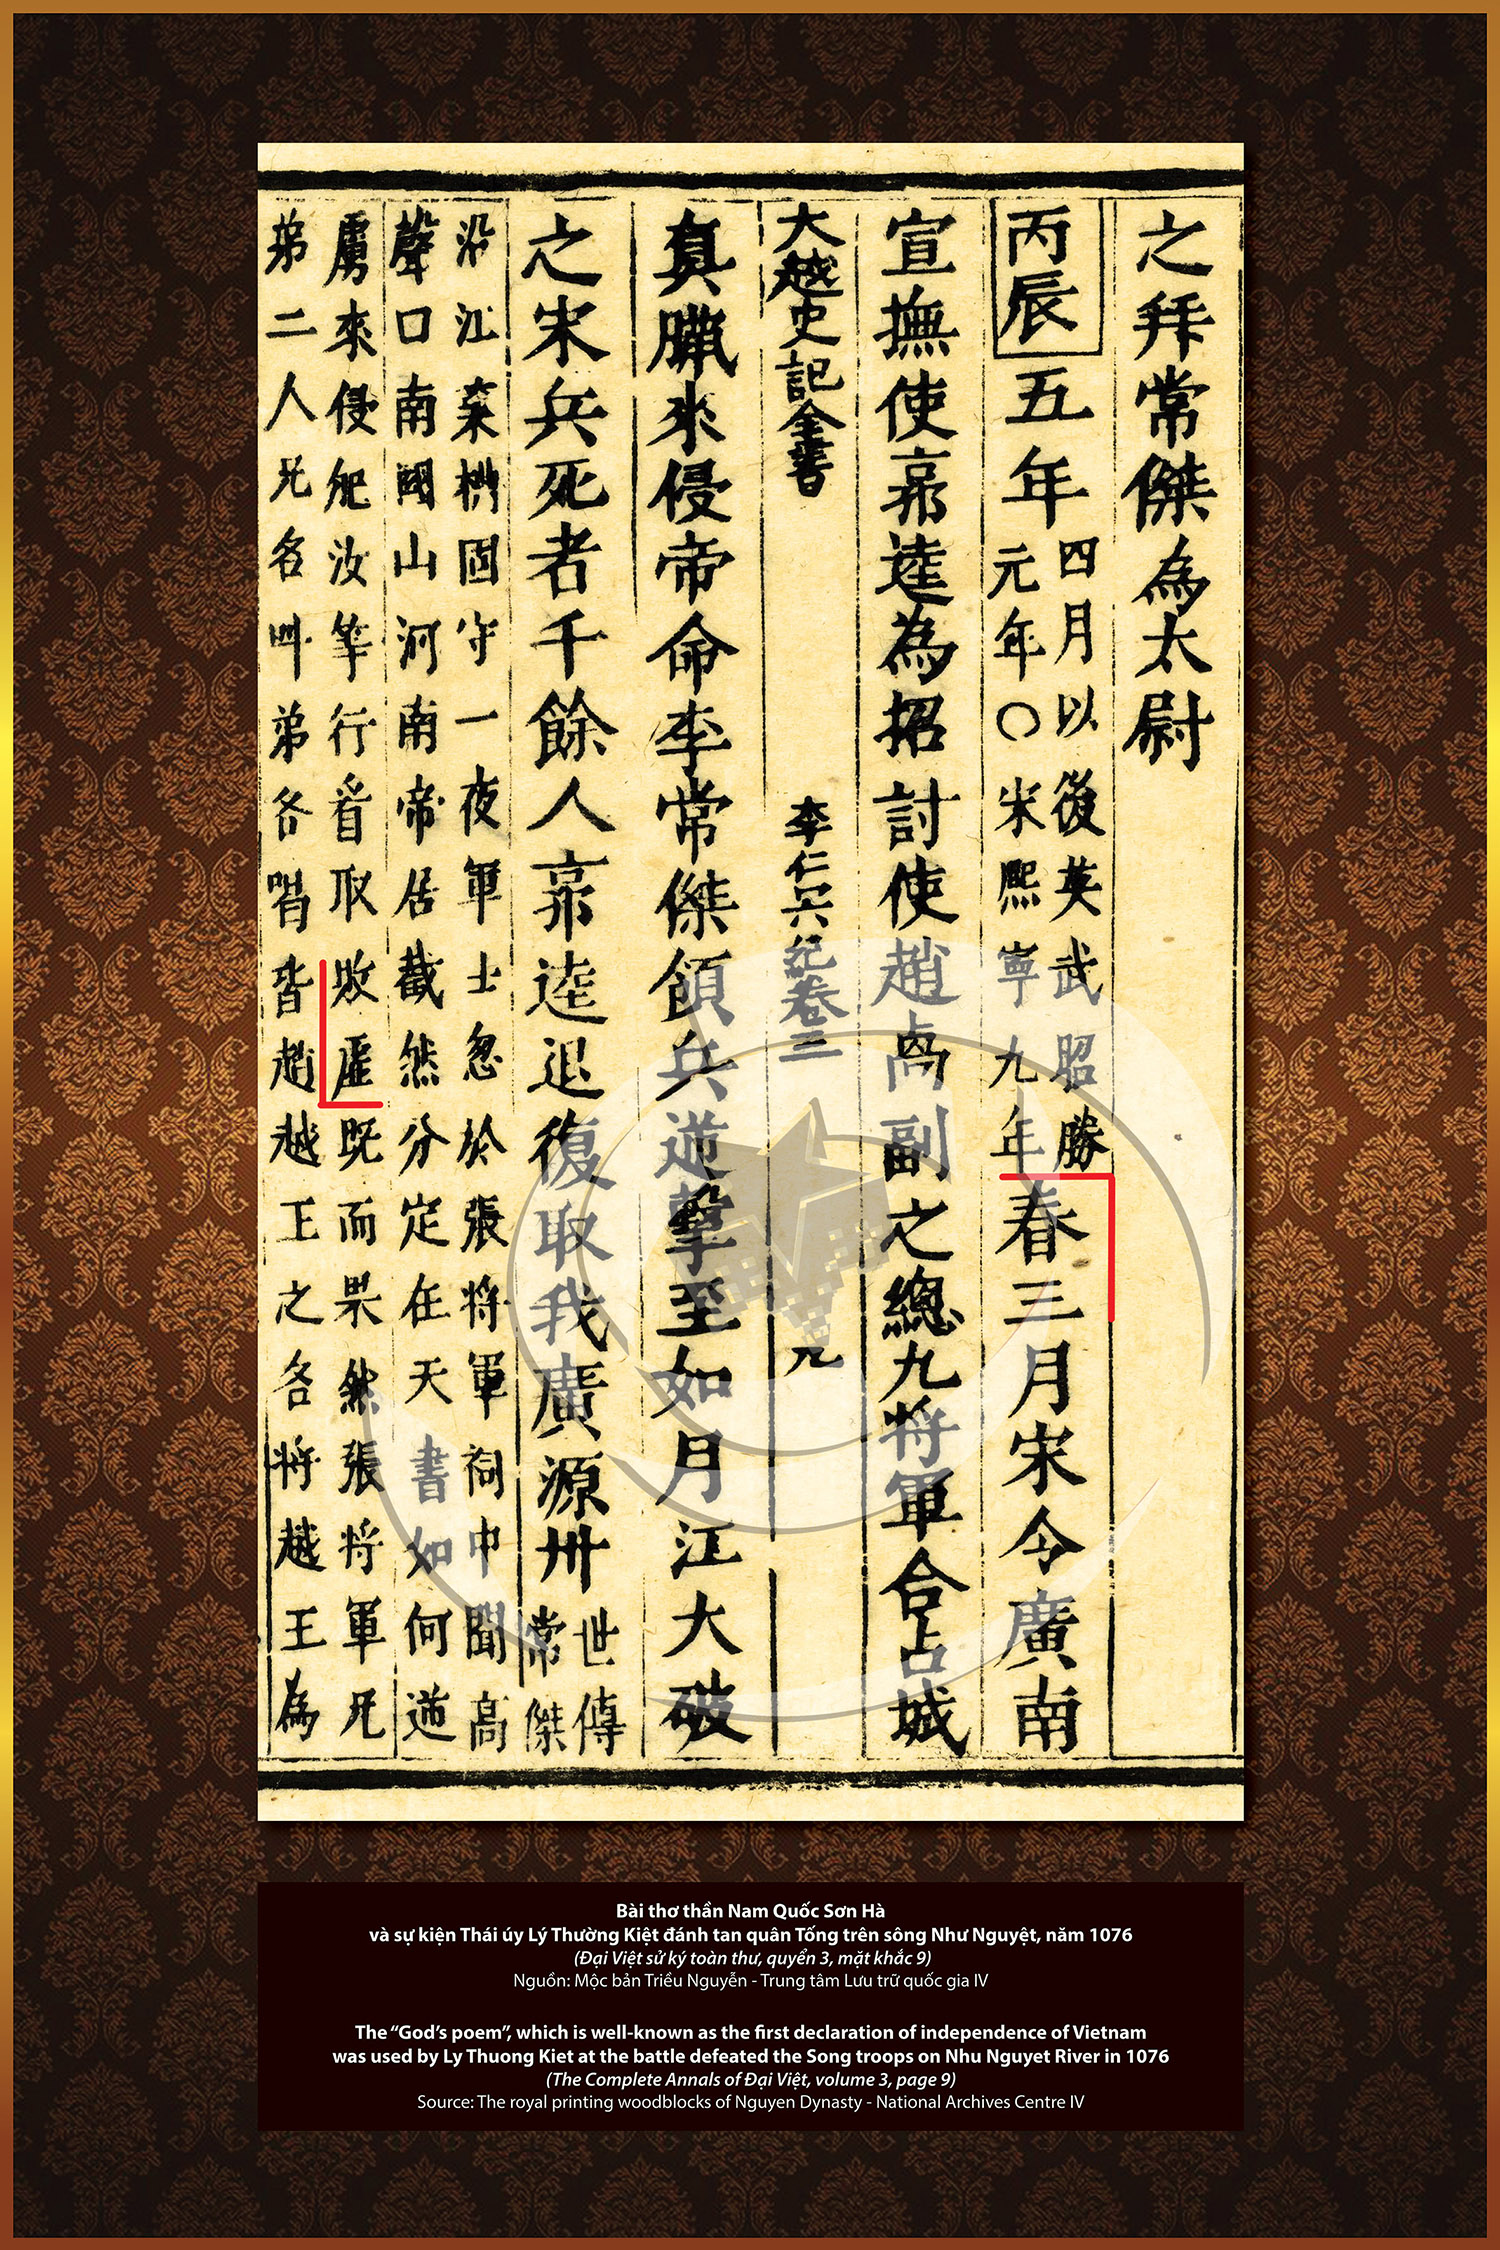 之拜常傑為太尉
丙辰五年四月以後英武昭勝
元年〇宋熙寧九年春三月宋令廣南
宣撫使郭逵為招討使趙卨副之總九將軍合占城
大越史記全書 李仁宗紀卷三 九
真臘來侵帝命李常傑領兵逆擊至如月江大破
之宋兵死者千餘人郭逵退復取我廣源州世傳
常傑
沿江柵固守一夜軍士忽於張將軍祠中聞高
聲曰南國山河南帝居截然分定在天書如何逆
虜來侵犯汝等行看取敗虛既而果然張將軍兄
弟二人兄名叫弟名喝皆趙越王之名將越王為
Bài thơ thần Nam Quốc Sơn Hà
và sự kiện Thái úy Lý Thường Kiệt đánh tan quân Tống trên sông Như Nguyệt, năm 1076
(Đại Việt sử ký toàn thư, quyển 3, mặt khắc 9)
Nguồn: Mộc bản Triều Nguyễn - Trung tâm Lưu trữ quốc gia IV
The “God’s poem”, which is well-known as the first declaration of independence of Vietnam
was used by Ly Thuong Kiet at the battle defeated the Song troops on Nhu Nguyet River in 1076
(The Complete Annals of Đại Việt, volume 3, page 9)
Source: The royal printing woodblocks of Nguyen Dynasty - National Archives Centre IV